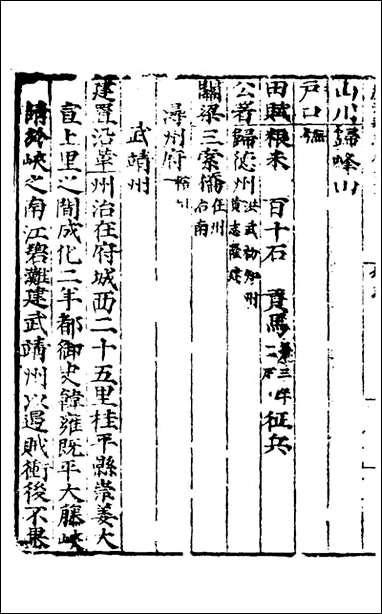 山川歸峰山
戶口無
田賦粮米 百十石 貢馬 三年 征兵
公署歸德州
關梁三寨橋在州
潯州府
武靖州
建置沿革州治在府城西二十五里桂平縣崇姜大
宣上里之間成化二年都御史韓雍既平大藤峽
請於峽之南江碧灘建武靖州以遏賊衝後不果